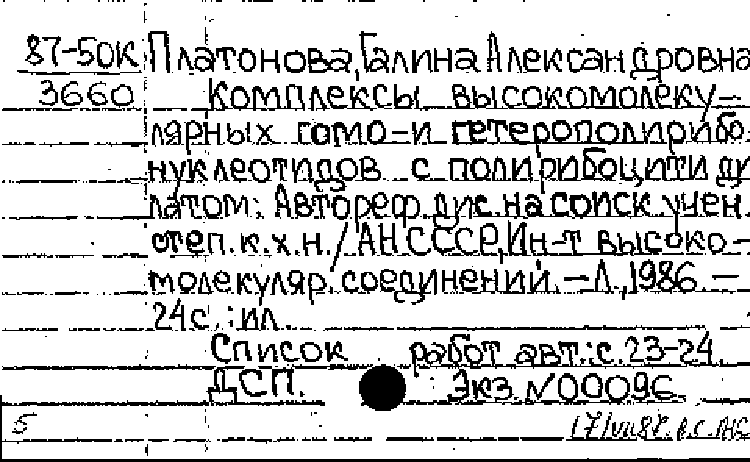 87-50к Платонова, Галина Александровна
3660 Комплексы высокомолеку-
лярных гомо-и гетерополирибо-
нуклеотидов с полирибоцитиди
латом: Автореф. дис. на соиск. учен.
степ. к.х.н. / АН СССР, Ин-т высоко-
молекуляр. соединений. - Л., 1986. -
24с.: ил.
Список работ авт.: с. 23-24.
ДСП. Экз. N00096
5